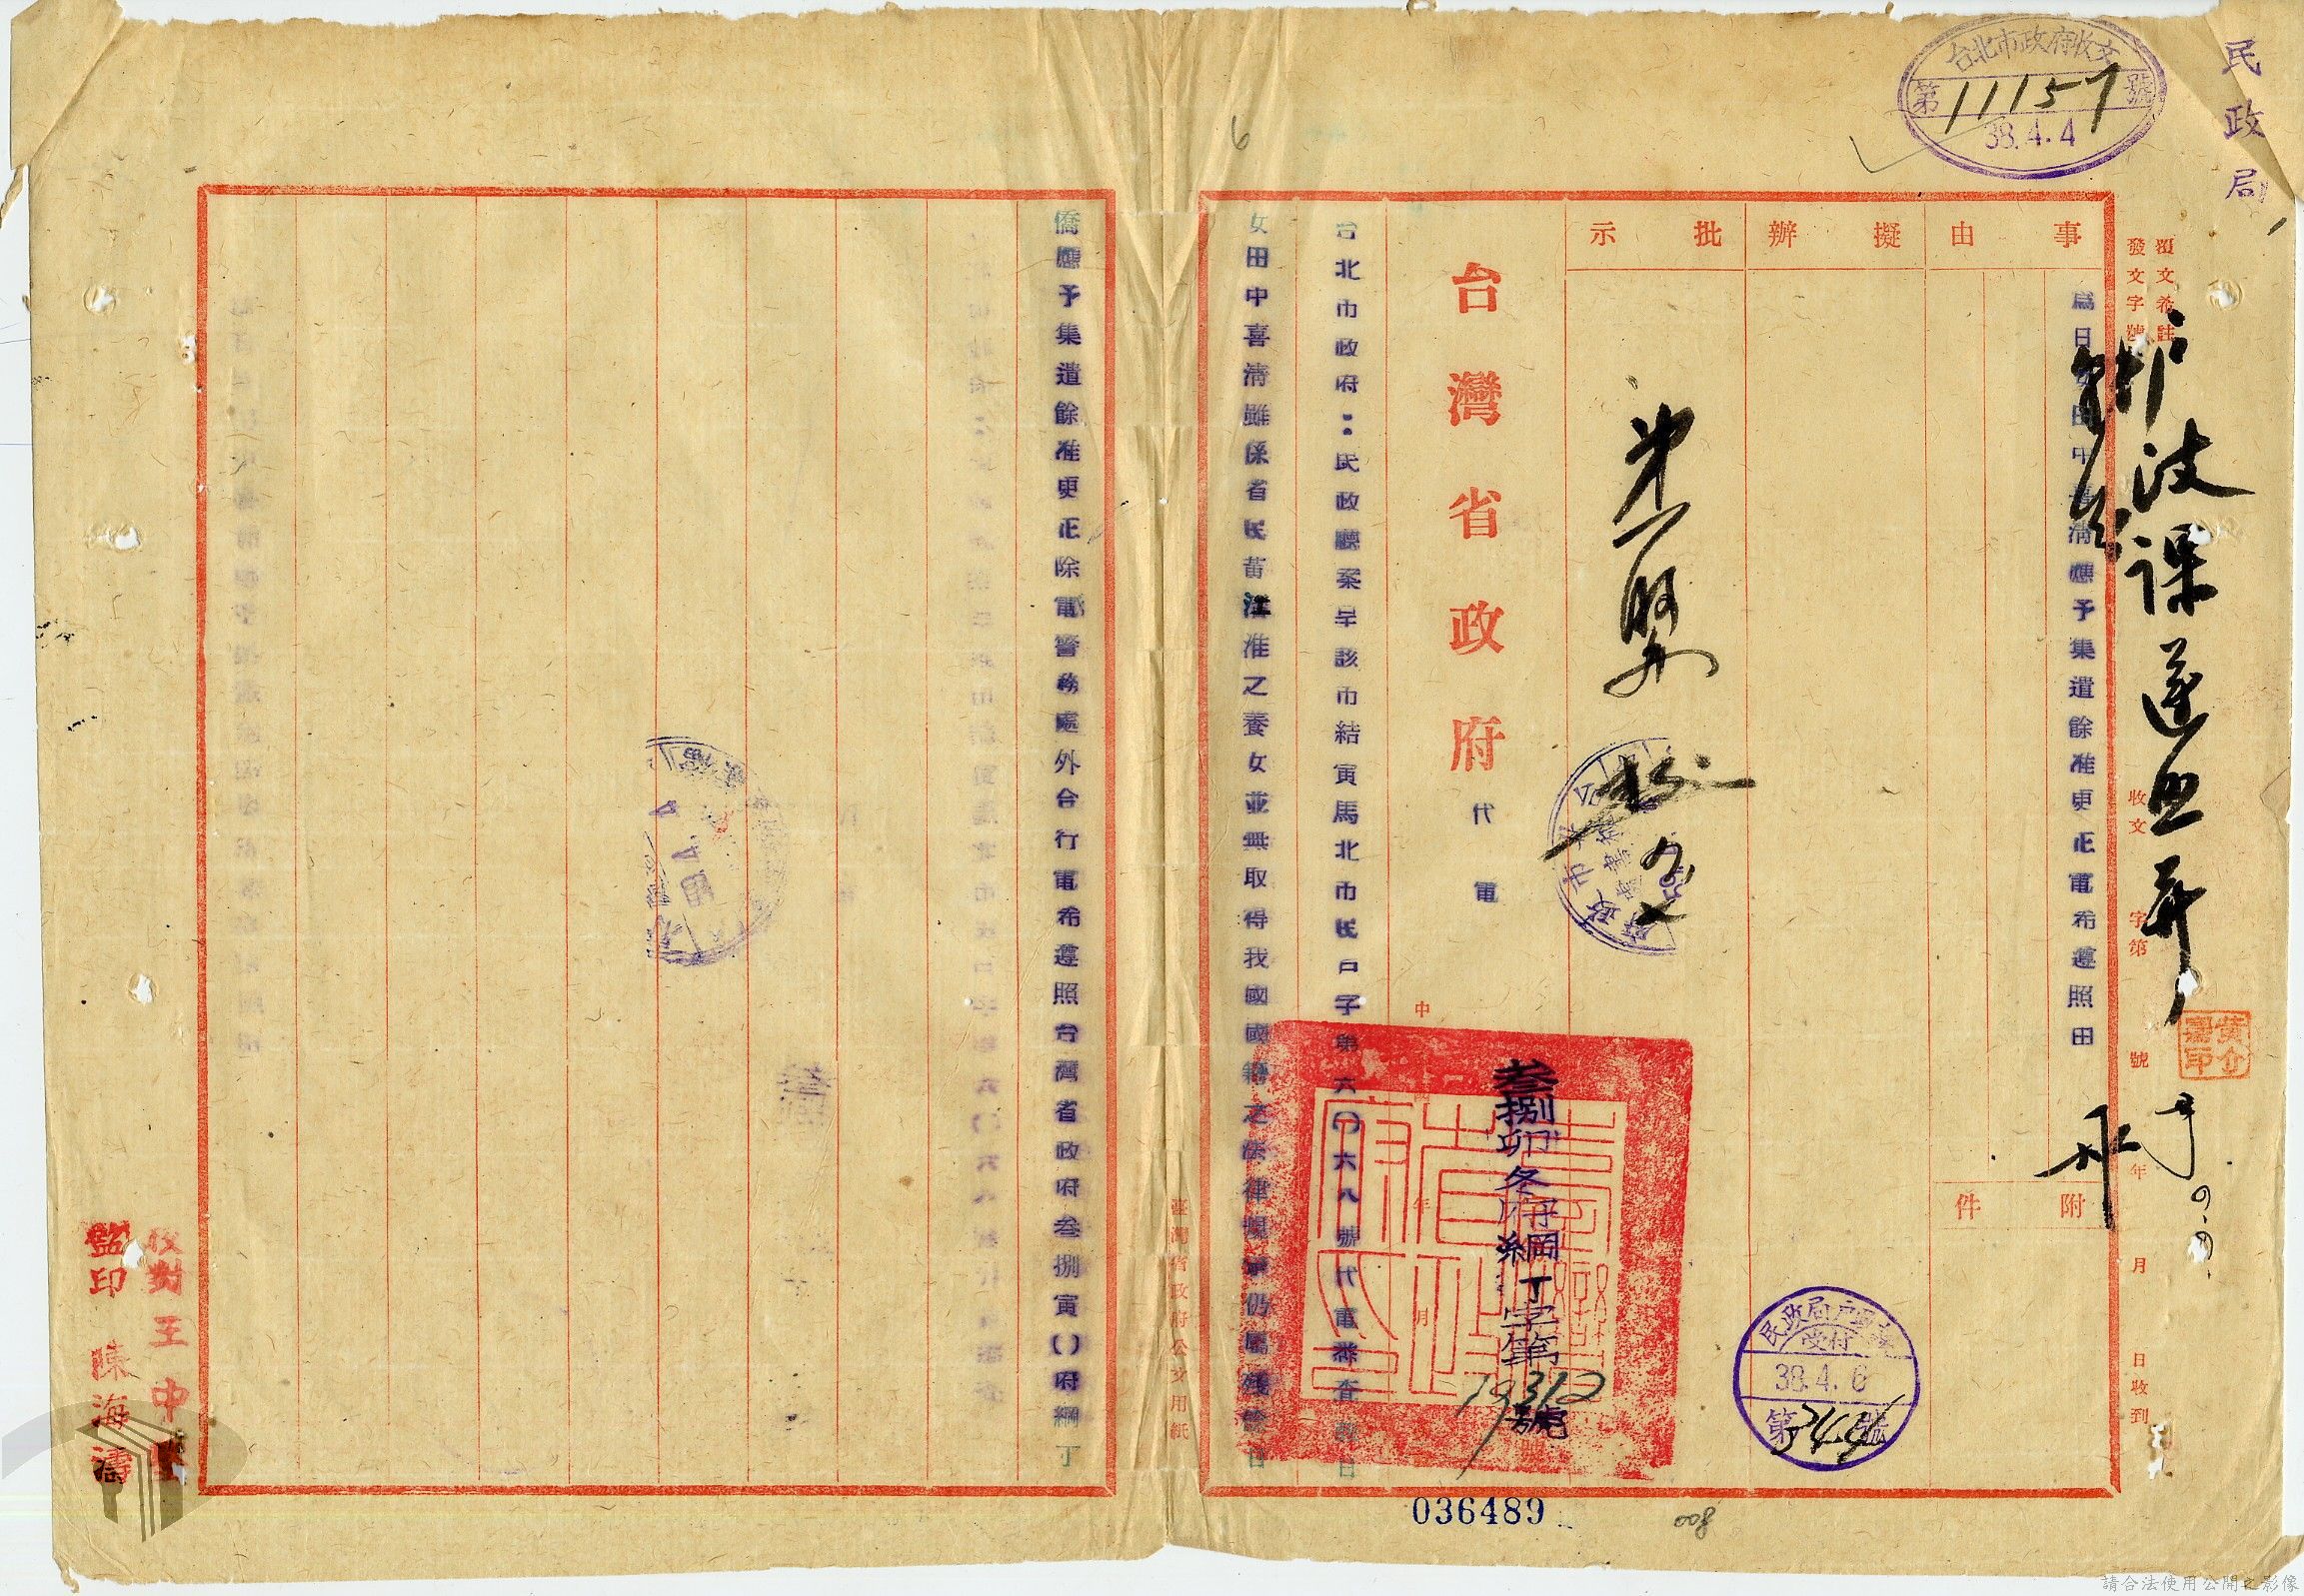 民政局
台北市政府收文
第11157號
38.4.4
覆文希註
發文字號
收文 字第 號
年 月 日收到
黃介嘉印
事由
擬辦
批示
為日女田中喜清應予集遣餘准更正電希遵照由
附件
台灣省政府 代電
中 年 月
叁捌卯冬府綱丁字第19312號
台北市政府:民政廳案呈該市結寅馬北市民戶字第六()六八號代電恭查該日
女田中喜清雖係省民黃江淮之養女並無取得我國國籍之法律規定仍屬殘餘日
臺灣省政府公文用紙
僑應予集遣餘准更正除電警務處外合行電希遵照台灣省政府叁捌寅()府綱丁
民政局戶
受付
38.4.6
第344號
校對王中
監印 陳海濤
6
036489
008
請合法使用公開之影像